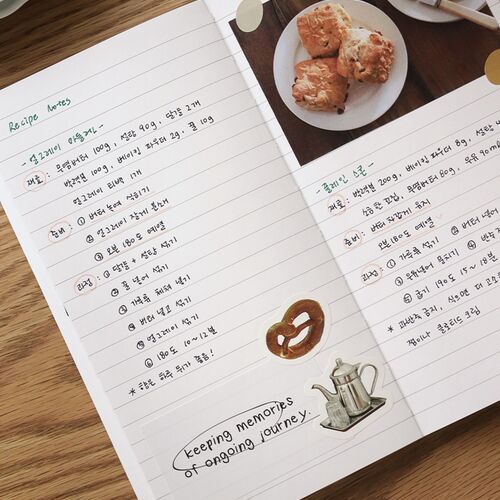 Recipe Notes
- 얼그레이 마들렌 -
재료 : 무염버터 100g, 설탕 90g, 달걀 2개
박력분 100g, 베이킹 파우더 2g, 꿀 10g
얼그레이 티백 1개
준비 : ① 버터 녹여 식히기
② 얼그레이 잘게 부수기
③ 오븐 180도 예열
과정 : ① 달걀 + 설탕 섞기
② 꿀 넣어 섞기
③ 가루류 체쳐 넣기
④ 버터 넣고 섞기
⑤ 얼그레이 섞기
⑥ 180도 10~12분
* 하루 뒤가 좋음!
keeping memories
of ongoing journey.
- 플레인 스콘 -
재료 : 박력분 200g, 베이킹 파우더 8g, 설탕
소금 한 꼬집, 무염버터 60g, 우유 90ml
준비 : 버터 차갑게 유지
오븐 180도 예열
과정 : ① 가루류 섞기 ② 버터 넣어
③ 우유 넣어 뭉치기 ④ 반죽
⑤ 굽기 190도 15~18분
* 과반죽 금지, 식으면 더
잼이나 클로티드 크림